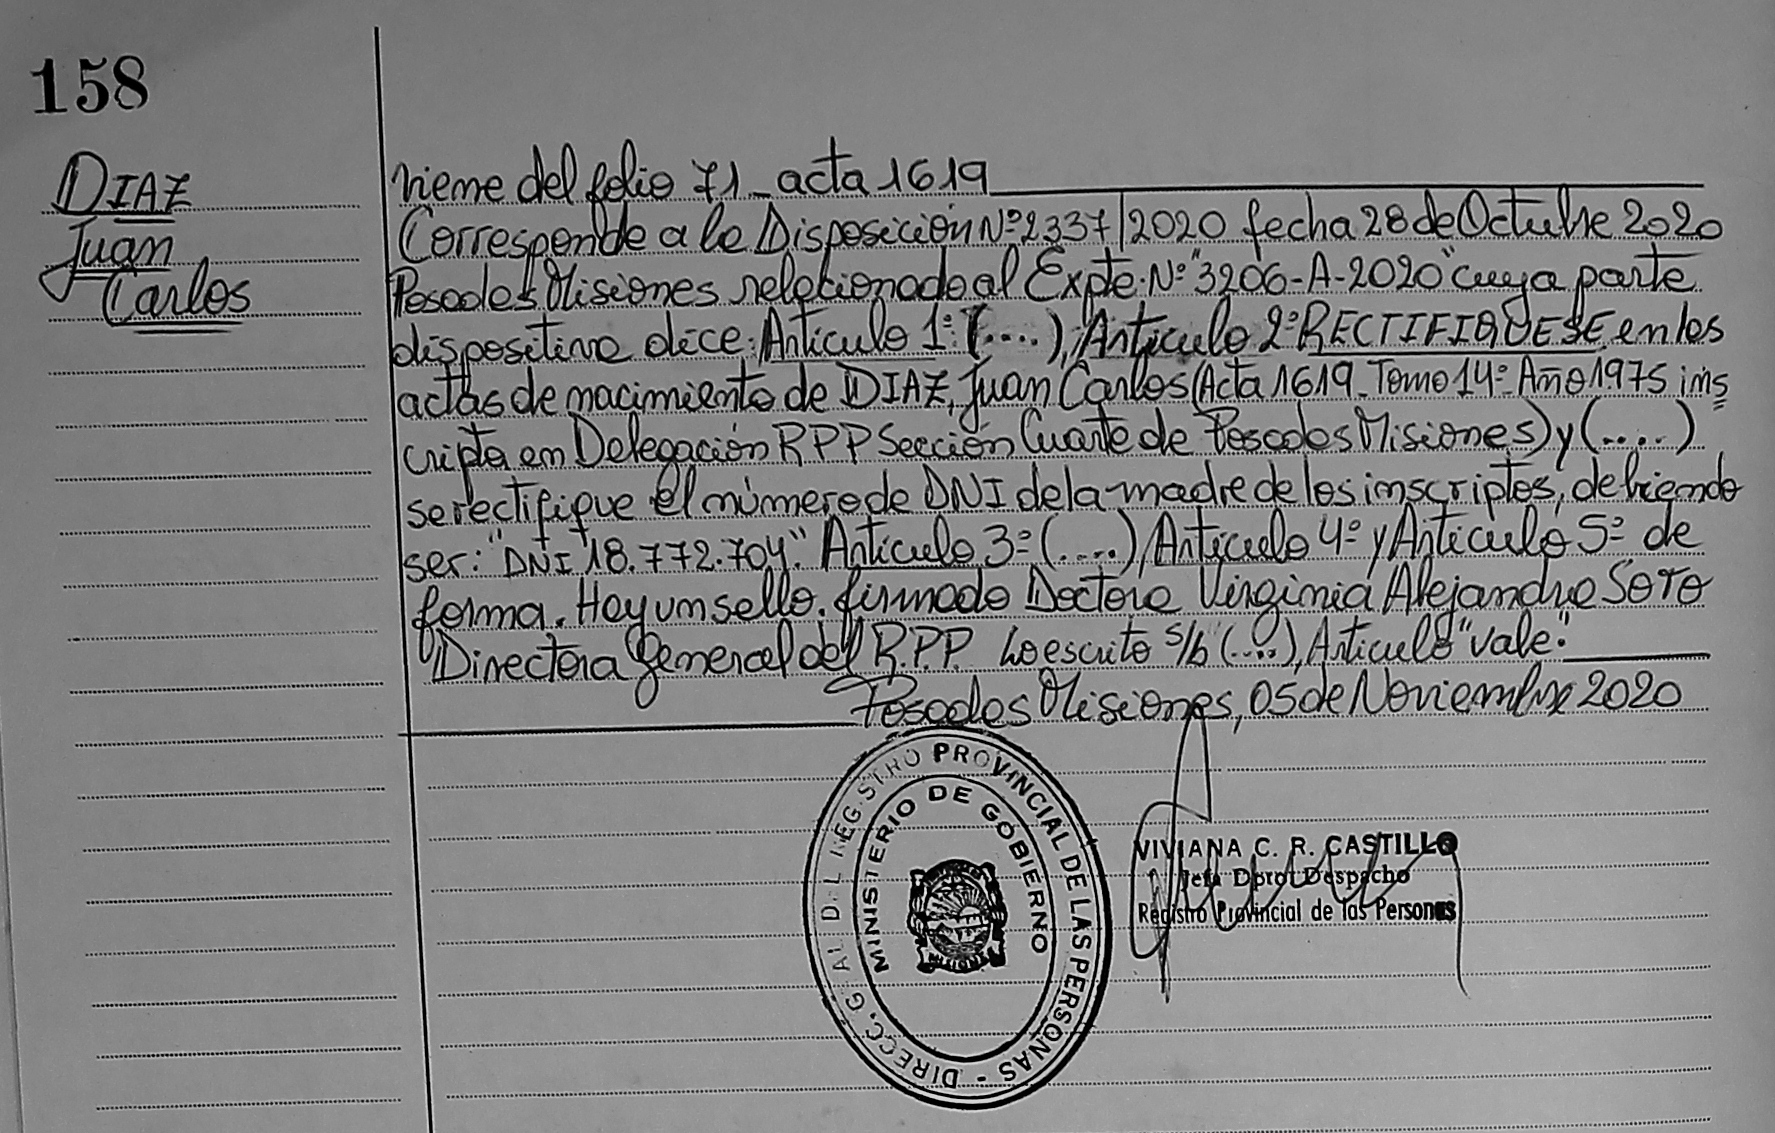 158
DIAZ
Juan
Carlos
viene del folio 71_ acta 1619
Corresponde a la Disposición Nº2337/2020 fecha 28 de Octubre 2020
Posadas Misiones relacionado al Expte. Nº "3206-A-2020" cuya parte
dispositiva dice: Artículo 1º: (....), Artículo 2º RECTIFIQUESE en los
actas de nacimiento de DIAZ, Juan Carlos (Acta 1619_ Tomo 14º Año 1975 ins
cripta en Delegación RPP Sección Cuarta de Posadas Misiones) y (....)
se rectifique el número de DNI de la madre de los inscriptos, debiendo
ser: "DNI 18.772.704". Artículo 3º (....), Artículo 4º y Artículo 5º de
forma. Hay un sello. firmado Doctora Virginia Alejandra SOTO
Directora General del R.P.P. Lo escrito s/b (....), Artículo "vale".
Posadas Misiones, 05 de Noviembre 2020
DIRECC. GRAL DEL REGISTRO PROVINCIAL DE LAS PERSONAS -
MINISTERIO DE GOBIERNO
MISIONES
VIVIANA C. R. CASTILLO
Jefa Dpto. Despacho
Registro Provincial de las Personas